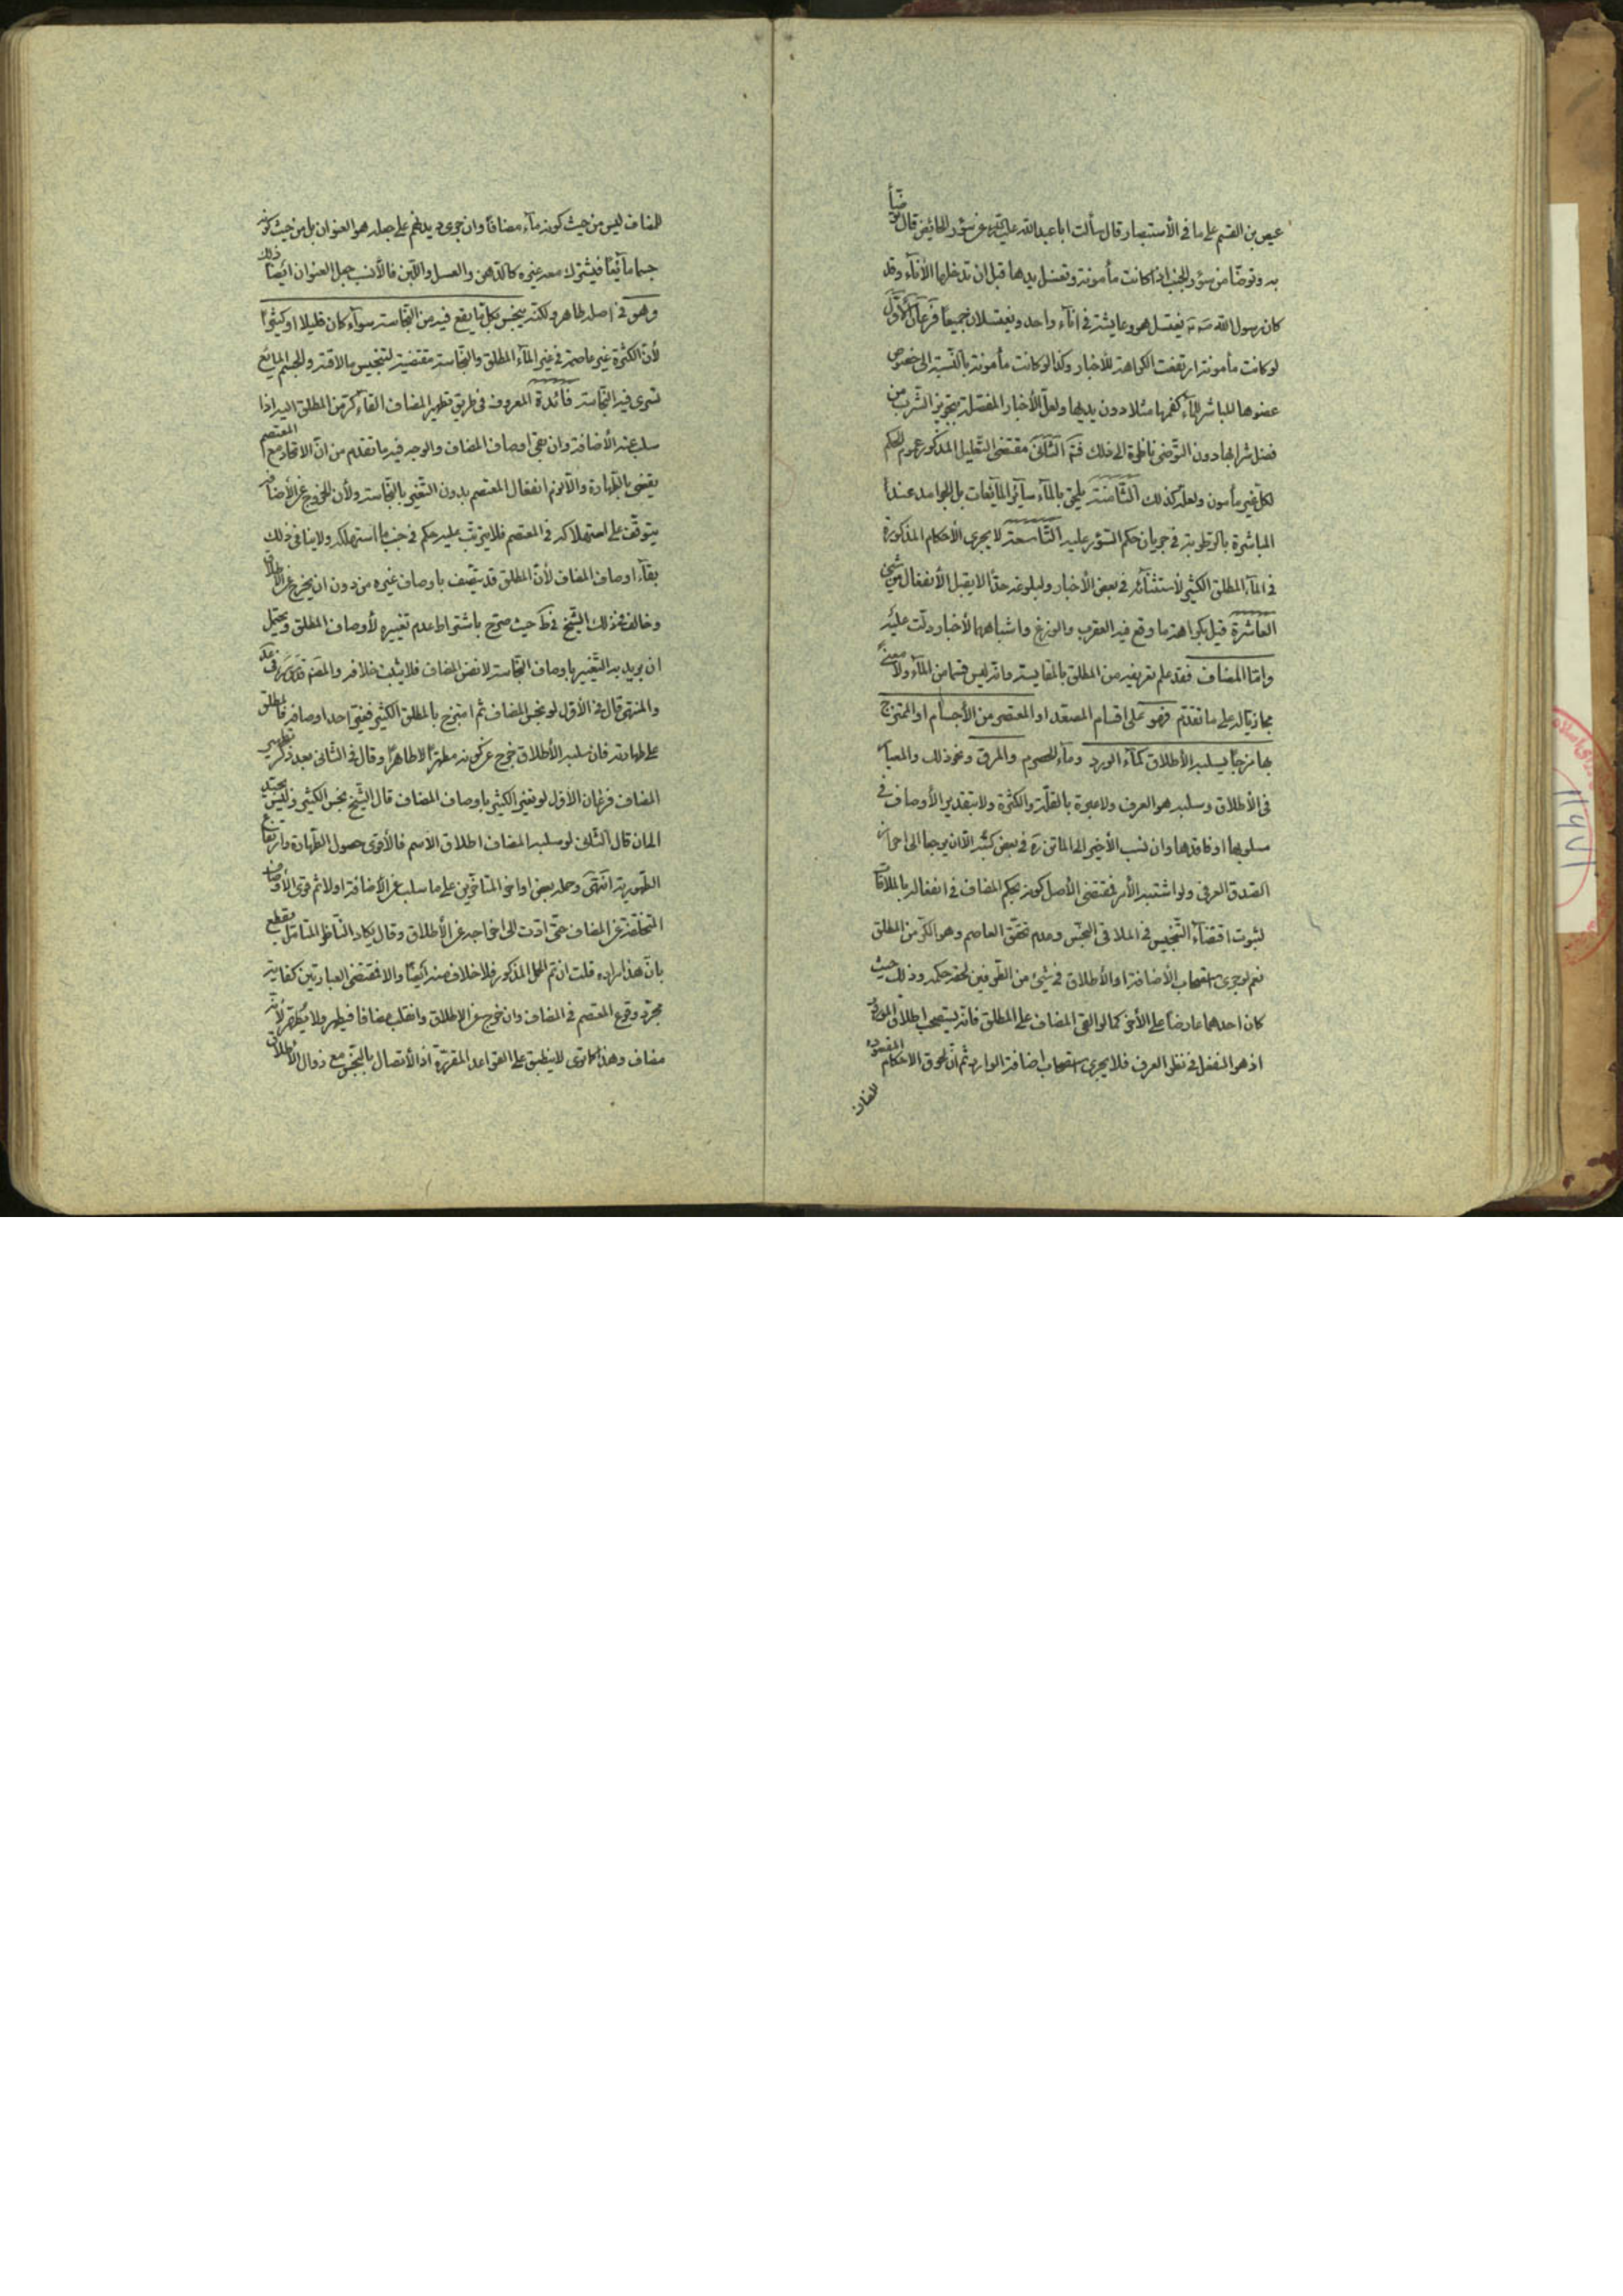 عيص بن القسم على ما في الأستبصار قال سألت ابا عبد الله عليه السلام عن سؤر الحائض قال توضأ
به وتوضأ من سؤر الجنب اذا كانت مأمونة وتغسل يدها قبل ان تدخلها الأناء وقد
كان رسول الله ص يغتسل هو وعايشة في اناء واحد ويغتسلان جميعا فرعان الأول
لو كانت مأمونة ارتفعت الكراهة للأخبار وكذا لو كانت مأمونة بالنسبة الى خصوص
عضوها المباشر للماء كفمها مثلا دون يديها ولعل الأخبار المفصلة بتجويز الشرب من
فضل شرابها دون التوضى ناظرة الى ذلك الثاني مقتضى التعليل المذكور عموم الحكم
لكل غير مأمون ولعله كذلك الثامنة يلحق بالماء سائر المائعات بل الجوامد عند
المباشرة بالرطوبة في جريان حكم السؤر عليه التاسعة لا يجري الأحكام المذكورة
في الماء المطلق الكثير لأستثنائه في بعض الأخبار ولبلوغه حدا لا يقبل الأنفعال من شيء
العاشرة قيل بكراهة ما وقع فيه العقرب والوزغ واشباهها لأخبار دلت عليه
واما المضاف فقد علم تعريفه من المطلق بالمقايسة وانه ليس قسما من الماء ولا معنى
مجازيا له على ما تقدم فهو على اقسام المصعد او المعتصر من الأجسام او الممتزج
بها مزجا يسلبه الأطلاق كماء الورد وماء الحصرم والمرق ونحو ذلك والمعيار
في الأطلاق وسلبه هو العرف ولا عبرة بالقلة والكثرة ولا بتقدير الأوصاف في
مسلوبها او فاقدها وان نسب الأخير الى الماتن ره في بعض كتبه الا ان يرجعا الى احراز
الصدق العرفي ولو اشتبه الأمر فمقتضى الأصل كونه بحكم المضاف في انفعاله بالملاقاة
لثبوت اقتضاء التنجيس في الملاقي النجس وعدم تحقق العاصم وهو الكر من المطلق
نعم لو جرى استصحاب الأضافة او الأطلاق في شيء من الطرفين لحقه حكمه وذلك حيث
كان احدهما عارضا على الأخر كما لو القي المضاف على المطلق فانه يستصحب اطلاق المورد
اذ هو المنفعل في نظر العرف فلا يجري استصحاب اضافة الوارد ثم ان لحوق الاحكام المقصودة
للمضاف
للمضاف ليس من حيث كونه ماء مضافا وان جرى ديدنهم على جعله هو العنوان بل من حيث كونه
جسما مائعا فيشترك معه غيره كالدهن والعسل واللبن فالأنسب جعل العنوان ايضا ذلك
وهو في اصله طاهر ولكنه ينجس بكل ما يقع فيه من النجاسة سواء كان قليلا او كثيرا
لأن الكثرة غير عاصمة في غير الماء المطلق والنجاسة مقتضية لتنجيس ما لاقته والجسم المايع
تسري فيه النجاسة فائدة المعروف في طريق تطهير المضاف القاء كر من المطلق اليه اذا
سلب عنه الأضافة وان بقي اوصاف المضاف والوجه فيه ما تقدم من ان الاتحاد مع المعتصم
يقضي بالطهارة والا لزم انفعال المعتصم بدون التغير بالنجاسة ولأن الخروج عن الأضافة
يتوقف على استهلاكه في المعتصم فلا يترتب عليه حكم في جنب ما استهلكه ولا ينافي ذلك
بقاء اوصاف المضاف لأن المطلق قد يتصف باوصاف غيره من دون ان يخرج عن الاطلاق
وخالف في ذلك الشيخ في ط حيث صرح باشتراط عدم تغييره لأوصاف المطلق ويحتمل
ان يريد به التغيير باوصاف النجاسة لا نفس المضاف فلا يثبت خلافه والعلامة في عد
والمنتهى قال في الأول لو نجس المضاف ثم امتزج بالمطلق الكثير فغير احد اوصافه فالمطلق
على طهارته فان سلبه الأطلاق خرج عن كونه مطهرا لا طاهرا وقال في الثاني بعد ذكر تطهير
المضاف فرعان الأول لو تغير الكثير باوصاف المضاف قال الشيخ نجس الكثير وليس بجيد
الى ان قال الثاني لو سلبه المضاف اطلاق الاسم فالأقوى حصول الطهارة وارتفاع
الطهورية انتهى وحمله بعض اواخر المتأخرين على ما سلب عن الأضافة اولا ثم قوى الأوصاف
المتخلفة عن المضاف حتى ادت الى اخراجه عن الأطلاق وقال يكاد الناظر المتأمل يقطع
بان هذا مراده قلت ان تم الحمل المذكور فلا خلاف منه ايضا والا فمقتضى العبارتين كفاية
مجرد وقوع المعتصم في المضاف وان خرج عن الاطلاق وانقلب مضافا فيطهر ولا يطهر لأنه
مضاف وهذا كما ترى لا ينطبق على القواعد المقررة اذ الأتصال بالنجس مع زوال الأطلاق